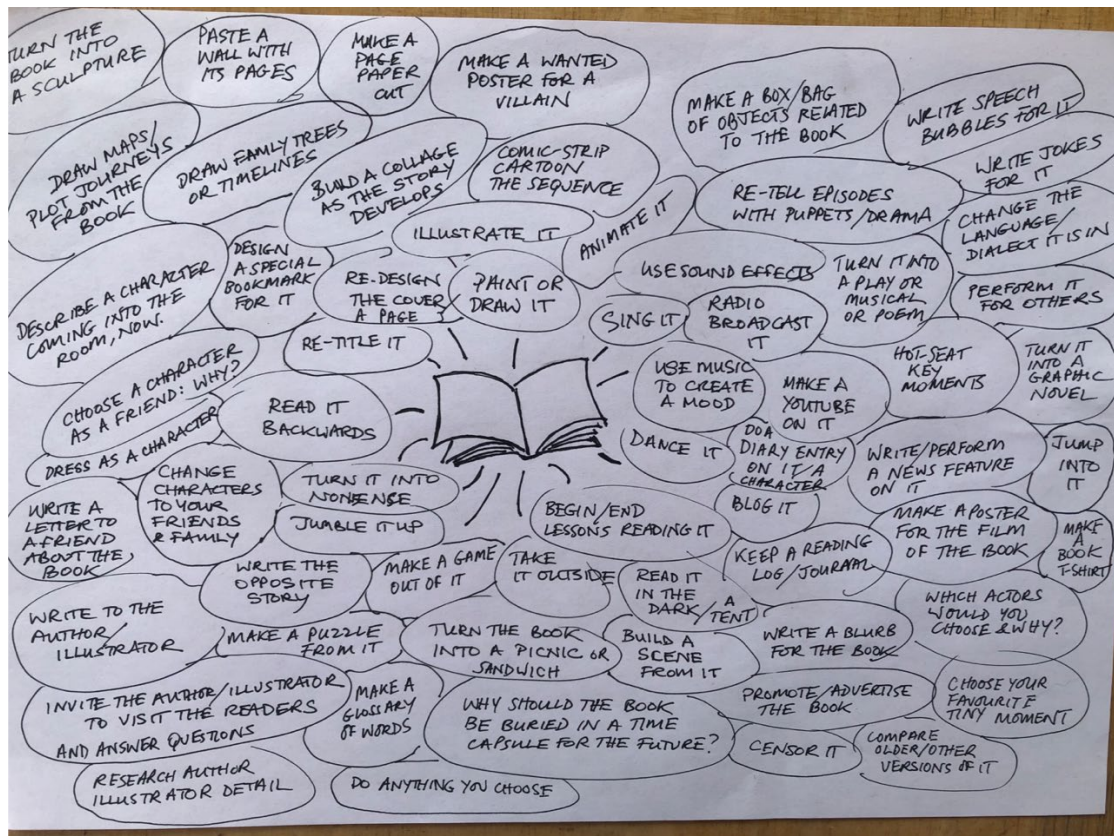 TURN THE
BOOK INTO
A SCULPTURE
PASTE A
WALL WITH
ITS PAGES
MAKE A
PAGE
PAPER
CUT
MAKE A WANTED
POSTER FOR A
VILLAIN
MAKE A BOX/BAG
OF OBJECTS RELATED
TO THE BOOK
WRITE SPEECH
BUBBLES FOR IT
WRITE JOKES
FOR IT
DRAW MAPS/
PLOT JOURNEYS
FROM THE
BOOK
DRAW FAMILY TREES
OR TIMELINES
BUILD A COLLAGE
AS THE STORY
DEVELOPS
COMIC-STRIP
CARTOON
THE SEQUENCE
ANIMATE IT
RE-TELL EPISODES
WITH PUPPETS/DRAMA
CHANGE THE
LANGUAGE/
DIALECT IT IS IN
ILLUSTRATE IT
DESCRIBE A CHARACTER
COMING INTO THE
ROOM, NOW.
DESIGN
A SPECIAL
BOOKMARK
FOR IT
RE-DESIGN
THE COVER
A PAGE
PAINT OR
DRAW IT
USE SOUND EFFECTS
TURN IT INTO
A PLAY OR
MUSICAL
OR POEM
PERFORM IT
FOR OTHERS
SING IT
RADIO
BROADCAST
IT
RE-TITLE IT
CHOOSE A CHARACTER
AS A FRIEND: WHY?
USE MUSIC
TO CREATE
A MOOD
MAKE A
YOUTUBE
ON IT
HOT-SEAT
KEY
MOMENTS
TURN IT
INTO A
GRAPHIC
NOVEL
READ IT
BACKWARDS
DRESS AS A CHARACTER
DANCE IT
DO A
DIARY ENTRY
ON IT/A
CHARACTER
WRITE/PERFORM
A NEWS FEATURE
ON IT
JUMP
INTO
IT
WRITE A
LETTER TO
A FRIEND
ABOUT THE
BOOK
CHANGE
CHARACTERS
TO YOUR
FRIENDS
& FAMILY
TURN IT INTO
NONSENSE
JUMBLE IT UP
BEGIN/END
LESSONS READING IT
BLOG IT
MAKE A POSTER
FOR THE FILM
OF THE BOOK
MAKE
A
BOOK
T-SHIRT
WRITE THE
OPPOSITE
STORY
MAKE A GAME
OUT OF IT
TAKE
IT OUTSIDE
READ IT
IN THE
DARK/A
TENT
KEEP A READING
LOG/JOURNAL
WHICH ACTORS
WOULD YOU
CHOOSE & WHY?
WRITE TO THE
AUTHOR/
ILLUSTRATOR
MAKE A PUZZLE
FROM IT
TURN THE BOOK
INTO A PICNIC OR
SANDWICH
BUILD A
SCENE
FROM IT
WRITE A BLURB
FOR THE BOOK
INVITE THE AUTHOR/ILLUSTRATOR
TO VISIT THE READERS
AND ANSWER QUESTIONS
MAKE A
GLOSSARY
OF WORDS
WHY SHOULD THE BOOK
BE BURIED IN A TIME
CAPSULE FOR THE FUTURE?
PROMOTE/ADVERTISE
THE BOOK
CHOOSE YOUR
FAVOURITE
TINY MOMENT
CENSOR IT
COMPARE
OLDER/OTHER
VERSIONS OF IT
RESEARCH AUTHOR
ILLUSTRATOR DETAIL
DO ANYTHING YOU CHOOSE